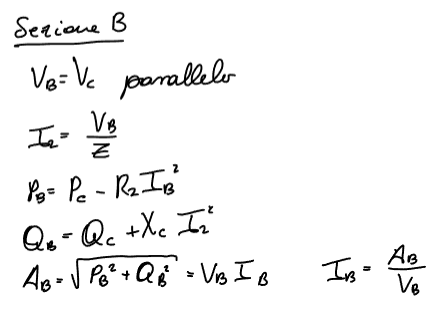 Sezione B
V_B = V_C parallelo
I_2 = V_B / Z
P_B = P_C - R_2 I_B²
Q_B = Q_C + X_C I_2²
A_B = √(P_B² + Q_B²) = V_B I_B I_B = A_B / V_B